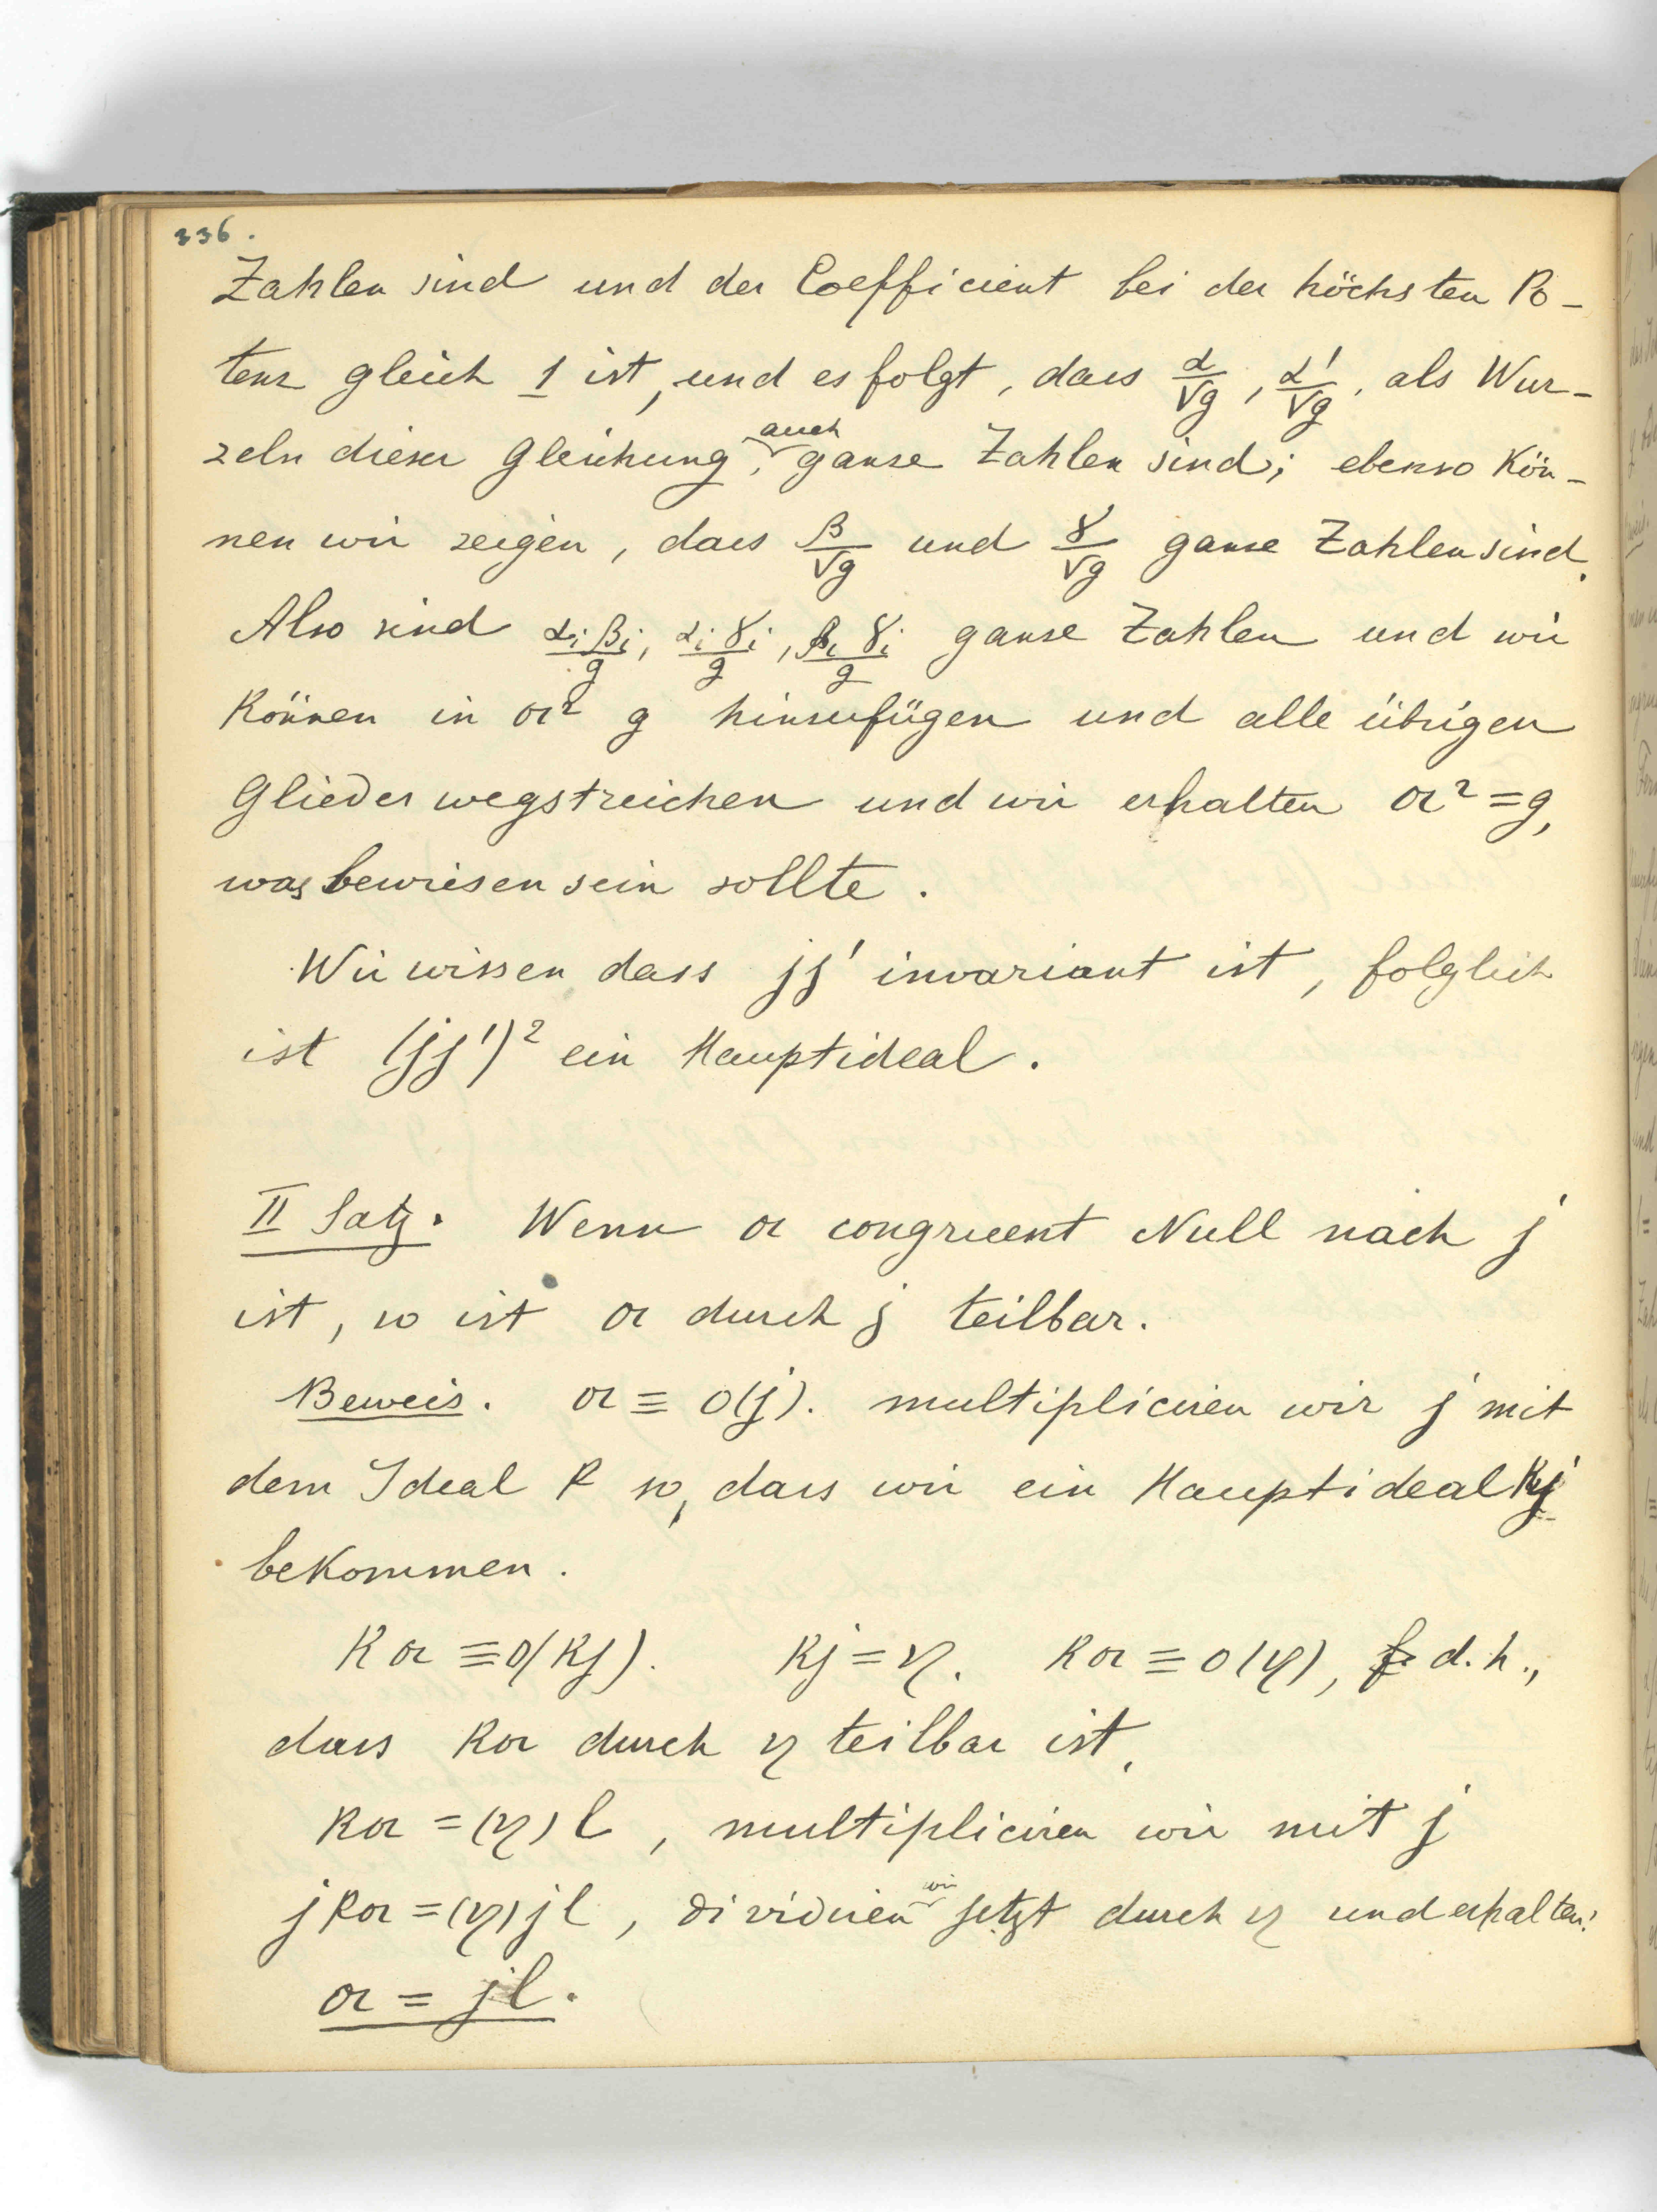 336.
Zahlen sind und der Coefficient bei der höchsten Po-
tenz gleich 1 ist, und es folgt, dass α/√g, α'/√g, als Wur-
zeln dieser Gleichung, auch ganze Zahlen sind; ebenso kön-
nen wir zeigen, dass β/√g und γ/√g ganze Zahlen sind.
Also sind αᵢβᵢ/g, αᵢγᵢ/g, βᵢγᵢ/g ganze Zahlen und wir
können in 𝔞² g hinzufügen und alle übrigen
Glieder wegstreichen und wir erhalten 𝔞² = g,
was bewiesen sein sollte.
Wir wissen dass jj' invariant ist, folglich
ist (jj')² ein Hauptideal.
II Satz. Wenn 𝔞 congruent Null nach j
ist, so ist 𝔞 durch j teilbar.
Beweis. 𝔞 ≡ 0(j). multipliciren wir j mit
dem Ideal k so, dass wir ein Hauptideal kj
bekommen.
k𝔞 ≡ 0(kj). kj = η. k𝔞 ≡ 0(η), d.h.,
dass k𝔞 durch η teilbar ist,
k𝔞 = (η)l, multipliciren wir mit j
jk𝔞 = (η)jl, dividiren wir jetzt durch η und erhalten:
𝔞 = jl.